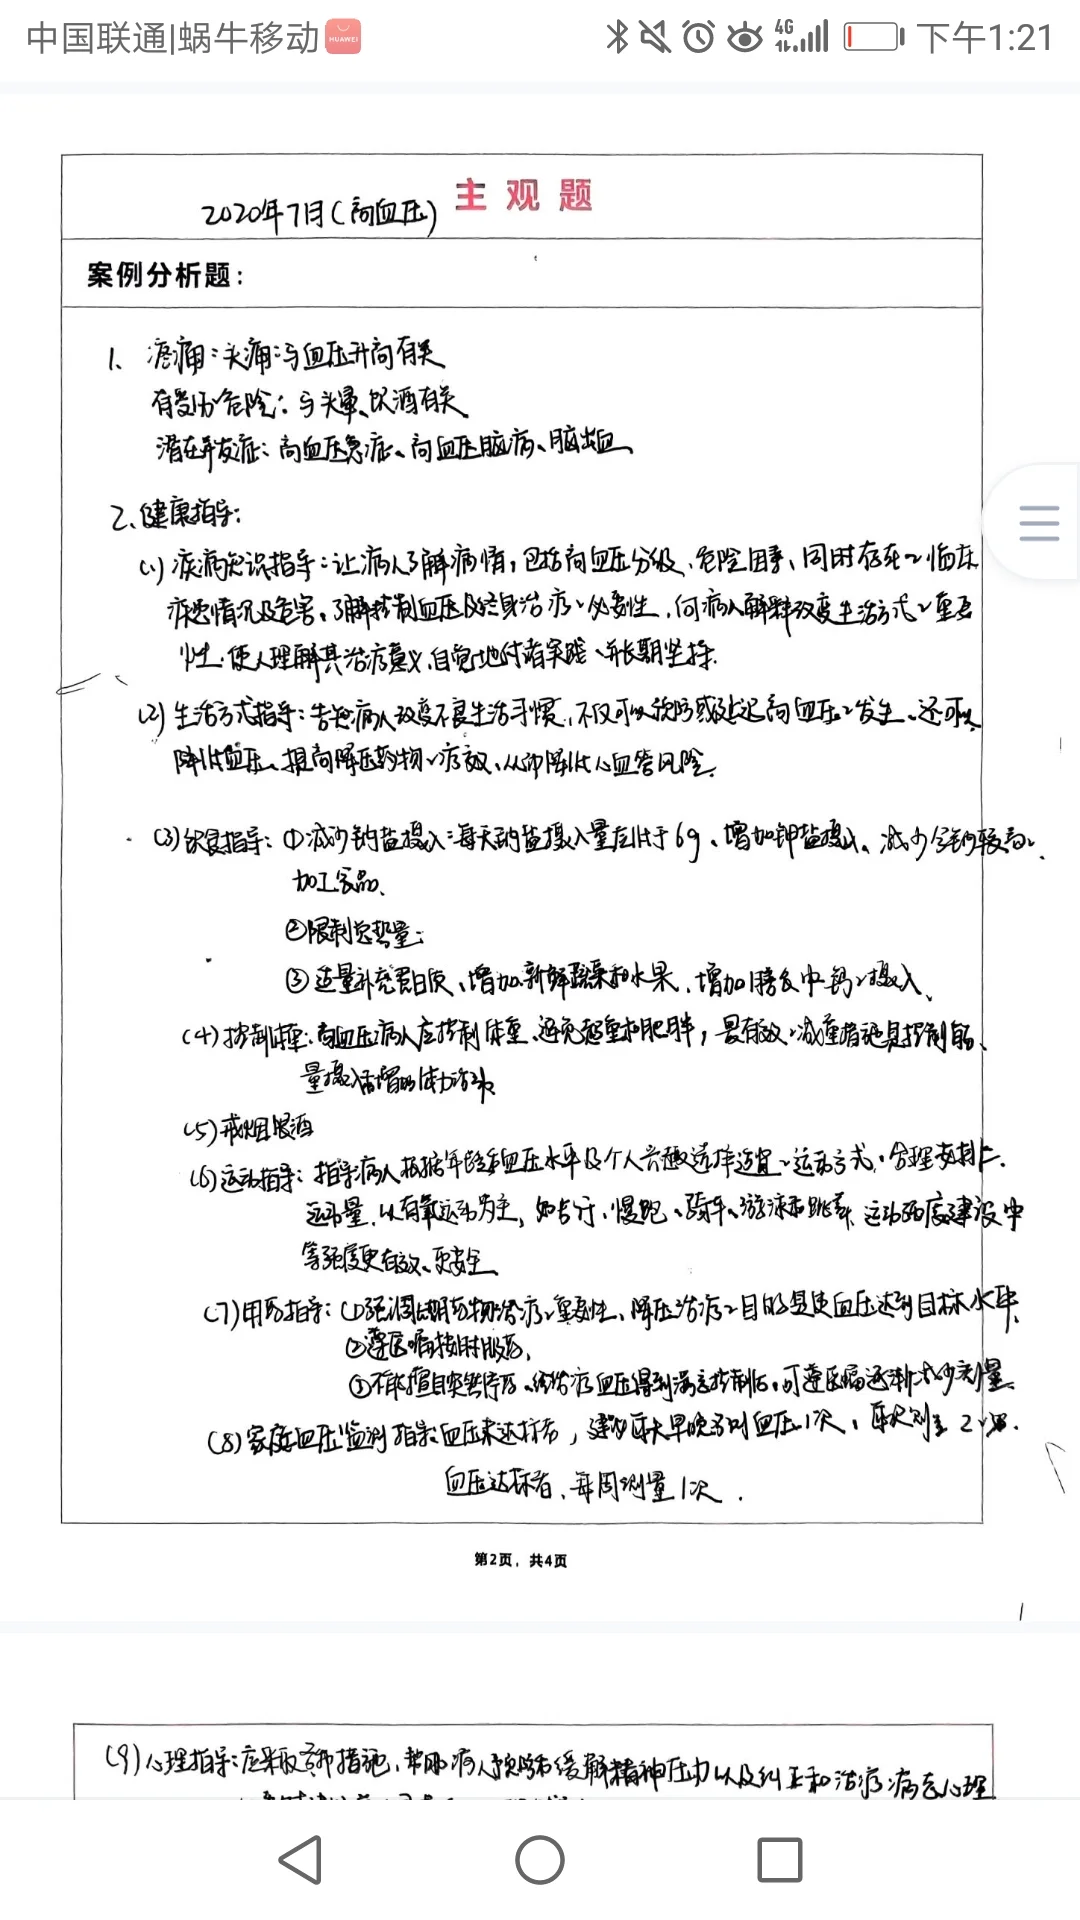 中国联通|蜗牛移动 HUAWEI 4G 下午1:21
主观题
2020年7月(高血压)
案例分析题:
1、疼痛:头痛:与血压升高有关
有受伤危险:与头晕、饮酒有关
潜在并发症:高血压急症、高血压脑病、脑出血
2、健康指导:
(1)疾病知识指导:让病人了解病情,包括高血压分级、危险因素、同时存在的临床
疾患情况及危害。了解控制血压及终身治疗的必要性,向病人解释改变生活方式的重要
性,使人理解其治疗意义,自觉地付诸实践、并长期坚持.
(2)生活方式指导:告知病人改变不良生活习惯,不仅可以预防或延迟高血压的发生、还可以
降低血压、提高降压药物的疗效、从而降低心血管风险.
(3)饮食指导:①减少钠盐摄入:每天钠盐摄入量应低于6g、增加钾盐摄入、减少含钠较高的
加工食品、
②限制总热量;
③适量补充蛋白质、增加新鲜蔬菜和水果、增加膳食中钙的摄入、
(4)控制体重:高血压病人应控制体重、避免超重和肥胖,最有效的减重措施是控制能
量摄入和增加体力活动
(5)戒烟限酒
(6)运动指导:指导病人根据年龄和血压水平及个人兴趣选择适宜的运动方式,合理安排
运动量,以有氧运动为主,如步行、慢跑、骑车、游泳和跳舞、运动强度建议中
等强度更有效、更安全
(7)用药指导:①强调长期药物治疗的重要性、降压治疗的目的是使血压达到目标水平
②遵医嘱按时服药,
③不能擅自突然停药、经治疗血压得到满意控制后,可遵医嘱逐渐减少剂量
(8)家庭血压监测指导:血压未达标者,建议每天早晚各测血压1次,每次测
血压达标者、每周测量1次.
第2页,共4页
(9)心理指导:应采取各种措施,帮助病人预防和缓解精神压力以及纠正和治疗病态心理